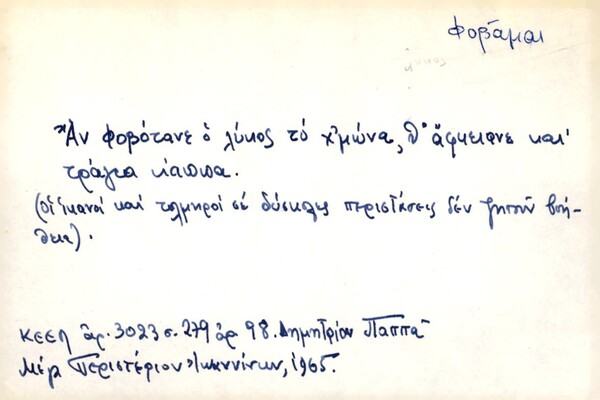 φοβᾶμαι
Ἄν φοβότανε ὁ λύκος τό χ'μώνα, θ' ἄφκειανε καί
τράγια κάππα.
(οἱ ἱκανοί καί τολμηροί σέ δύσκολες περιστάσεις δέν ζητοῦν βοή-
θεια).
ΚΕΕΛ ἀρ. 3023 σ. 279 ἀρ 98. Δημητρίου Παππᾶ
Μέγα Περιστέριον Ἰωαννίνων, 1965.